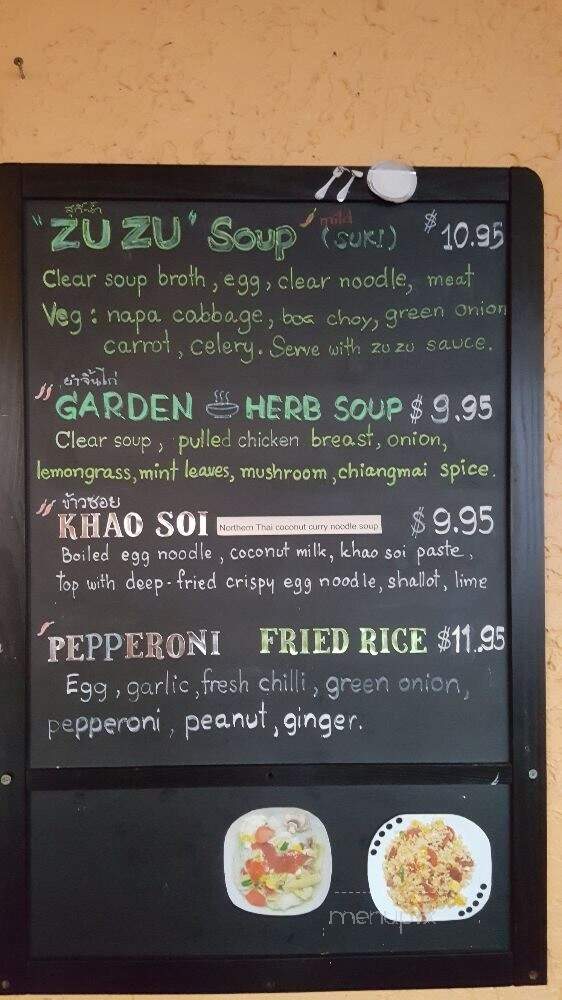 สุกี้น้ำ
"ZU ZU" Soup mild (SUKI) $10.95
Clear soup broth, egg, clear noodle, meat
Veg: napa cabbage, boa choy, green onion
carrot, celery. Serve with zuzu sauce.
ยำจิ้นไก่
GARDEN HERB SOUP $9.95
Clear soup, pulled chicken breast, onion,
lemongrass, mint leaves, mushroom, chiangmai spice.
ข้าวซอย
KHAO SOI Northern Thai coconut curry noodle soup $9.95
Boiled egg noodle, coconut milk, khao soi paste,
top with deep-fried crispy egg noodle, shallot, lime
PEPPERONI FRIED RICE $11.95
Egg, garlic, fresh chilli, green onion,
pepperoni, peanut, ginger.
menupix